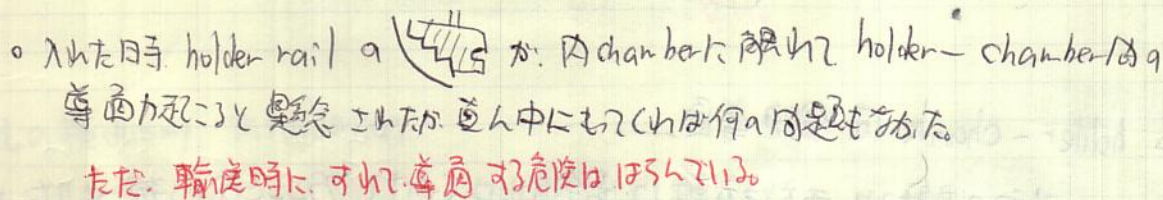 ○ 入れた時 holder rail の が 内chamberに触れて holder − chamber間の
導通が起こると懸念されたが 真ん中にもってくれば何の問題もなかった。
ただ、輸送時に、ずれて、導通する危険ははらんでいる。